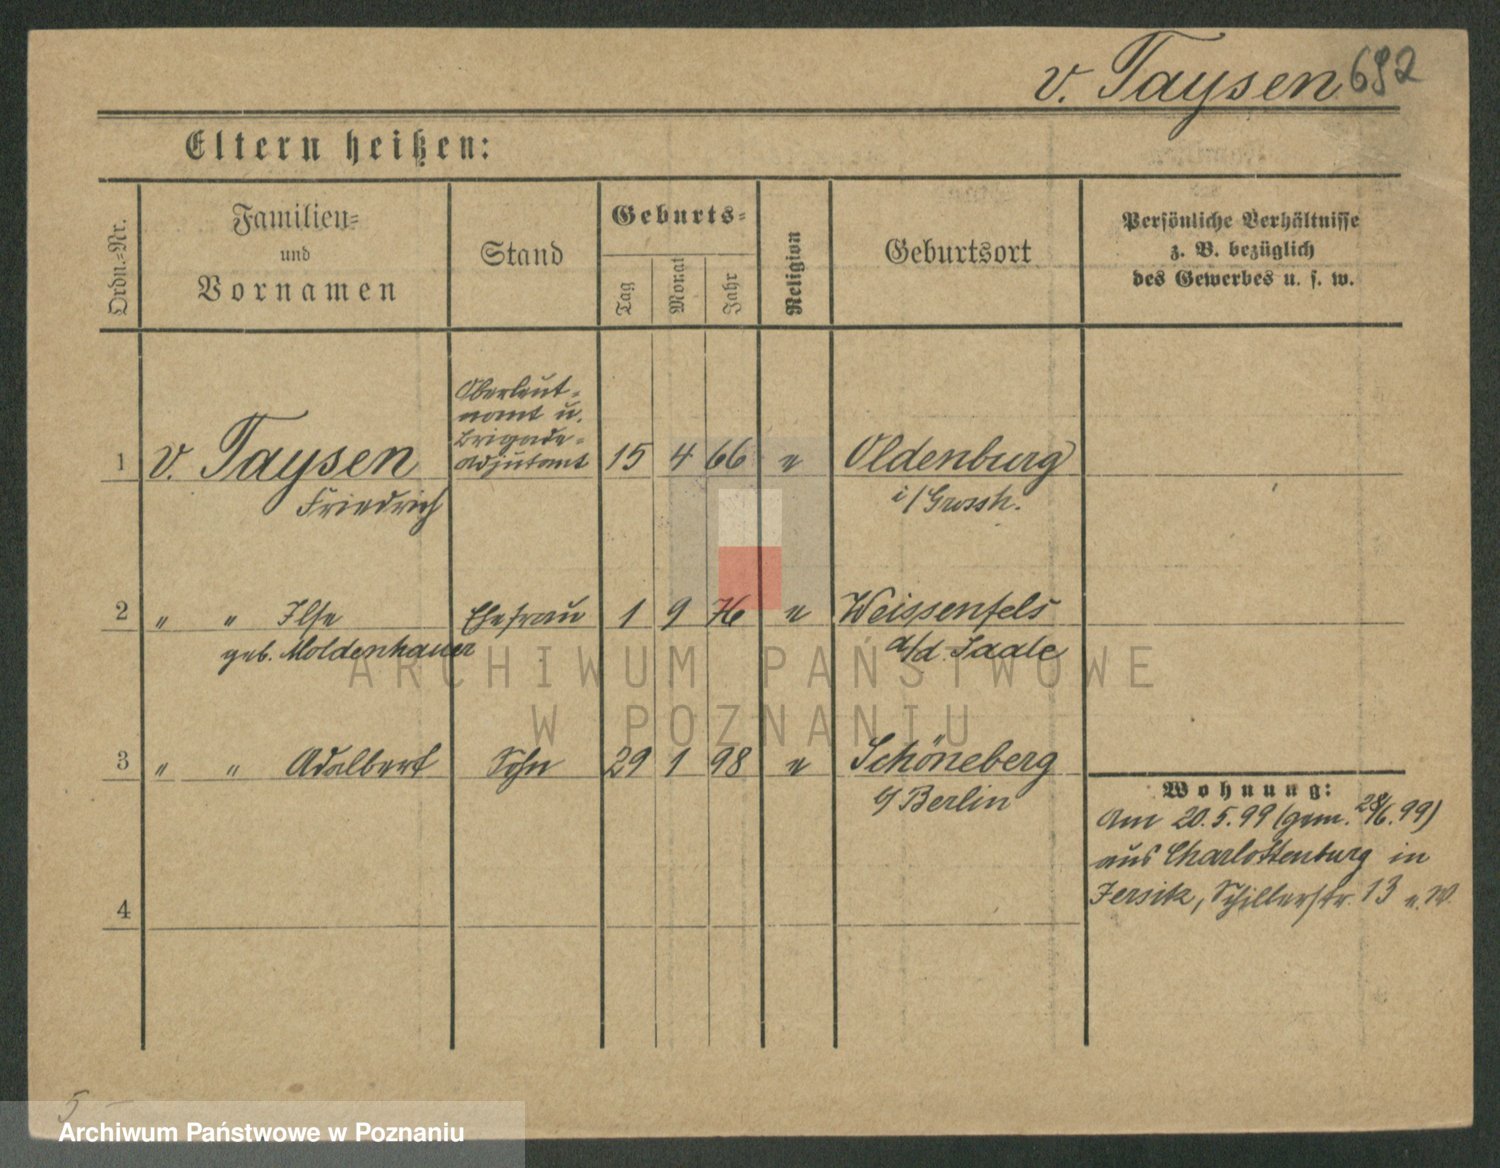 v. Taysen 692
Eltern heißen:
Ordn.-Nr.
Familien-
und
Vornamen
Stand
Geburts-
Tag
Monat
Jahr
Religion
Geburtsort
Persönliche Verhältnisse
z. B. bezüglich
des Gewerbes u. s. w.
Oberleut-
nant u.
Brigade-
1 v. Taysen adjutant 15 4 66 e Oldenburg
Friedrich i/Grossh.
2 " " Ilse Ehefrau 1 9 76 e Weissenfels
geb. Moldenhauer a/d. Saale
3 " " Adalbert Sohn 29 1 98 e Schöneberg
b/Berlin
Wohnung:
Am 20.5.99 (gem. 28/6.99)
aus Charlottenburg in
Jersitz, Schillerstr. 13 e. W.
4
5
ARCHIWUM PAŃSTWOWE
W POZNANIU
Archiwum Państwowe w Poznaniu